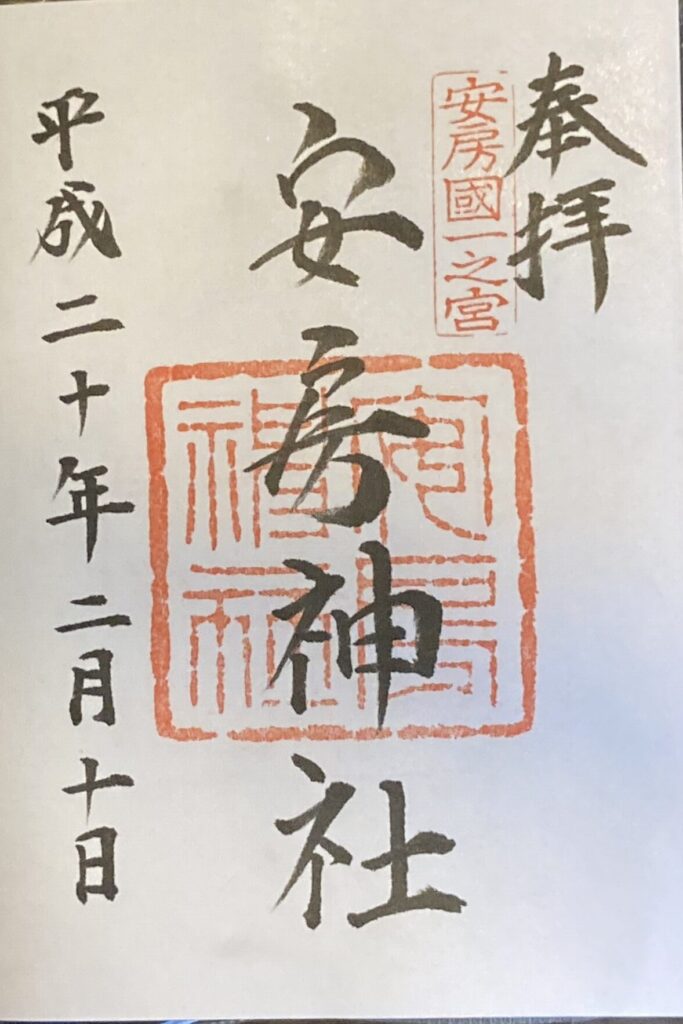 奉拝
安房國一之宮
安房神社
安房神社
平成二十年二月十日